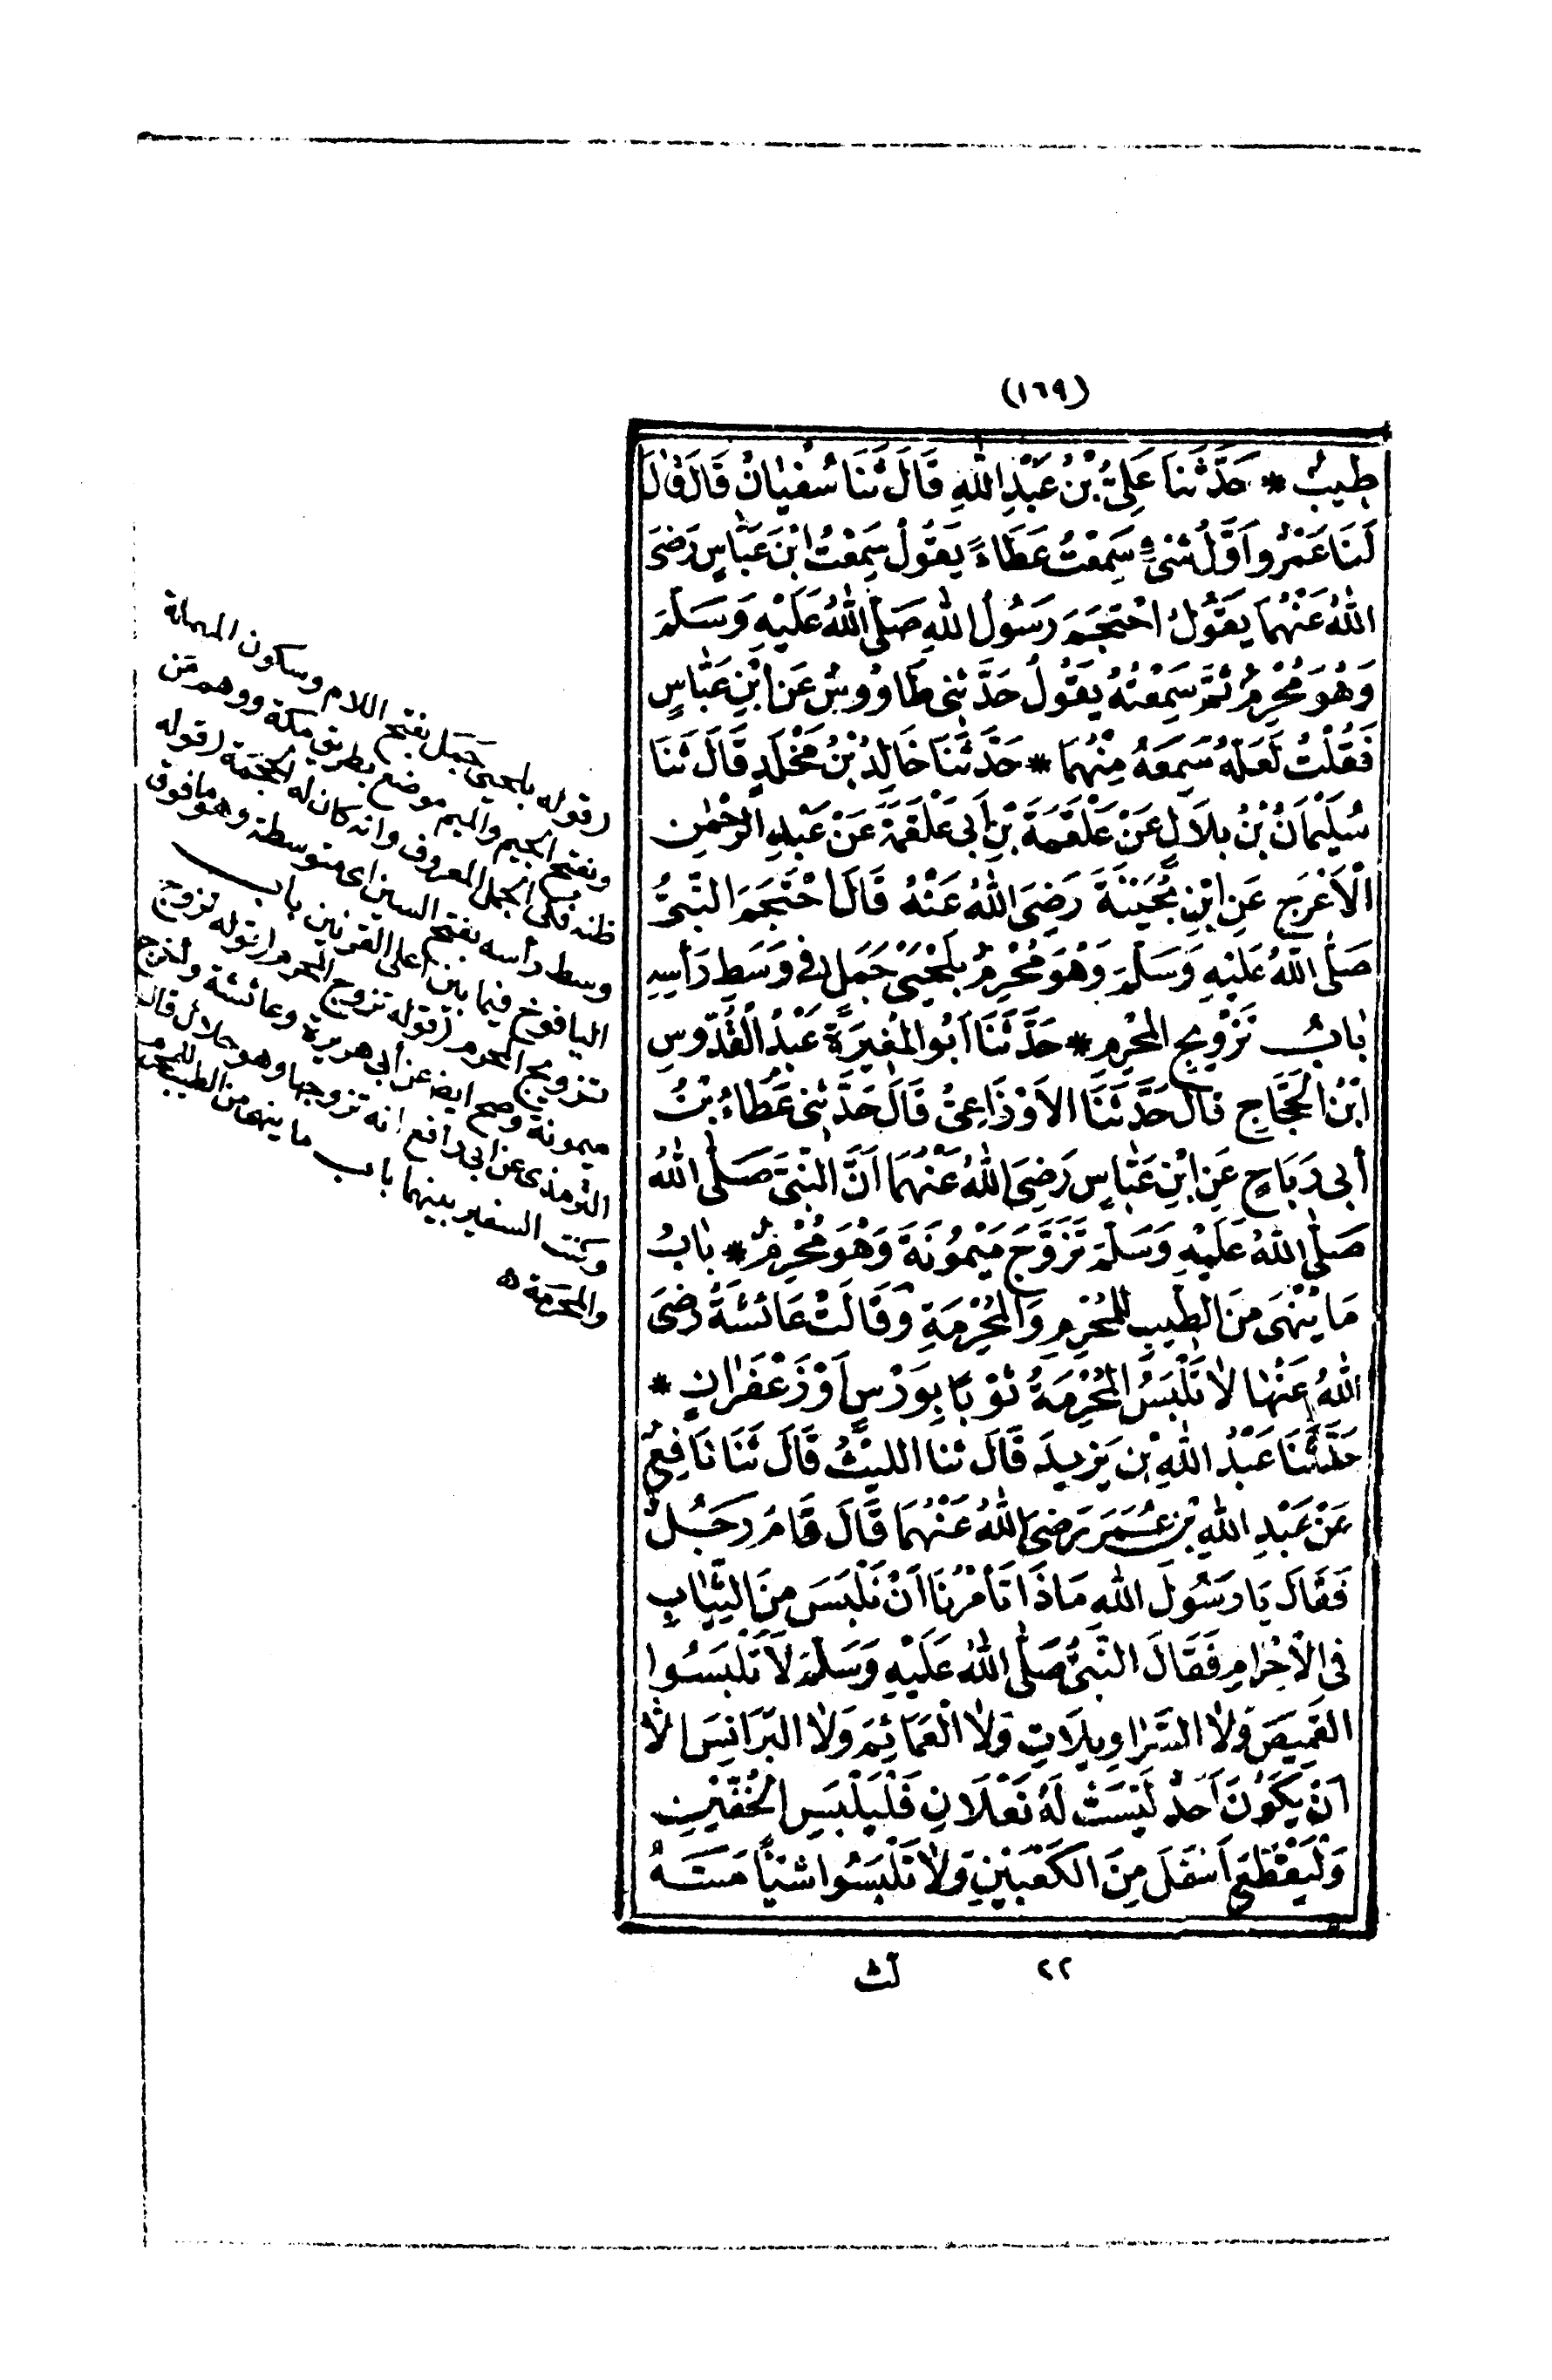 (١٦٩)
طِيبٌ * حَدَّثَنَا عَلِيُّ بْنُ عَبْدِ اللّٰهِ قَالَ ثَنَا سُفْيَانُ قَالَ قَالَ
لَنَا عَمْرٌو اَوَّلُ شَيْءٍ سَمِعْتُ عَطَاءً يَقُولُ سَمِعْتُ ابْنَ عَبَّاسٍ رَضِيَ
اللّٰهُ عَنْهُمَا يَقُولُ احْتَجَمَ رَسُولُ اللّٰهِ صَلَّى اللّٰهُ عَلَيْهِ وَسَلَّمَ
وَهُوَ مُحْرِمٌ ثُمَّ سَمِعْتُهُ يَقُولُ حَدَّثَنِي طَاوُوسٌ عَنِ ابْنِ عَبَّاسٍ
فَقُلْتُ لَعَلَّهُ سَمِعَهُ مِنْهُمَا * حَدَّثَنَا خَالِدُ بْنُ مَخْلَدٍ قَالَ ثَنَا
سُلَيْمَانُ بْنُ بِلَالٍ عَنْ عَلْقَمَةَ بْنِ اَبِي عَلْقَمَةَ عَنْ عَبْدِ الرَّحْمٰنِ
الْاَعْرَجِ عَنِ ابْنِ بُحَيْنَةَ رَضِيَ اللّٰهُ عَنْهُ قَالَ احْتَجَمَ النَّبِيُّ
صَلَّى اللّٰهُ عَلَيْهِ وَسَلَّمَ وَهُوَ مُحْرِمٌ بِلَحْيَيْ جَمَلٍ فِي وَسَطِ رَأْسِهِ
بَابُ تَزْوِيجِ الْمُحْرِمِ * حَدَّثَنَا اَبُو الْمُغِيرَةِ عَبْدُ الْقُدُّوسِ
ابْنُ الْحَجَّاجِ قَالَ حَدَّثَنَا الْاَوْزَاعِيُّ قَالَ حَدَّثَنِي عَطَاءُ بْنُ
أَبِي رَبَاحٍ عَنِ ابْنِ عَبَّاسٍ رَضِيَ اللّٰهُ عَنْهُمَا اَنَّ النَّبِيَّ صَلَّى اللّٰهُ
صَلَّى اللّٰهُ عَلَيْهِ وَسَلَّمَ تَزَوَّجَ مَيْمُونَةَ وَهُوَ مُحْرِمٌ * بَابُ
مَا يُنْهَى مِنَ الطِّيبِ لِلْمُحْرِمِ وَالْمُحْرِمَةِ وَقَالَتْ عَائشَةُ رَضِيَ
اللّٰهُ عَنْهَا لَا تَلْبَسُ الْمُحْرِمَةُ ثَوْبًا بِوَرْسٍ اَوْ زَعْفَرَانٍ *
حَدَّثَنَا عَبْدُ اللّٰهِ بْنِ يَزِيدَ قَالَ ثنا اللَّيْثُ قَالَ ثَنَا نَافِعٌ
عَنْ عَبْدِ اللّٰهِ بْنِ عُمَرَ رَضِيَ اللّٰهُ عَنْهُمَا قَالَ قَامَ رَجُلٌ
فَقَالَ يَا رَسُولَ اللّٰهِ مَاذَا تَأْمُرُنَا اَنْ نَلْبَسَ مِنَ الثِّيَابِ
فِي الْاِحْرَامِ فَقَالَ النَّبِيُّ صَلَّى اللّٰهُ عَلَيْهِ وَسَلَّمَ لَا تَلْبَسُوا
الْقَمِيصَ وَلَا السَّرَاوِيلَاتِ وَلَا الْعَمَائِمَ وَلَا الْبَرَانِسَ اِلَّا
اَنْ يَكُونَ اَحَدٌ لَيْسَتْ لَهُ نَعْلَانِ فَلْيَلْبَسِ الْخُفَّيْنِ
وَلْيَقْطَعْ اَسْفَلَ مِنَ الْكَعْبَيْنِ وَلَا تَلْبَسُوا شَيْئًا مَسَّهُ
(قوله بلحيى جمل بفتح اللام وسكون المهملة
وبفتح الجيم والميم موضع بطريق مكة ووهم من
ظنه فكى الجمل المعروف وانه كان اله الحجمة (قوله
وسط رأسه بفتح السين اى متوسطه وهو ما فوق
اليافوخ فيما بين اعلى القرنين باب
تزويج المحرم (قوله تزوج المحرم (قوله تزوج
ميمونة وصح ايضا عن أبي هريرة وعائشة واخرج
الترمذى عن ابى رافع انه تزوجها وهو حلال قال
وكنت السفير بينهما باب ما ينهى من الطيب للمحرم
والمحرمة ه
٢٢
ث